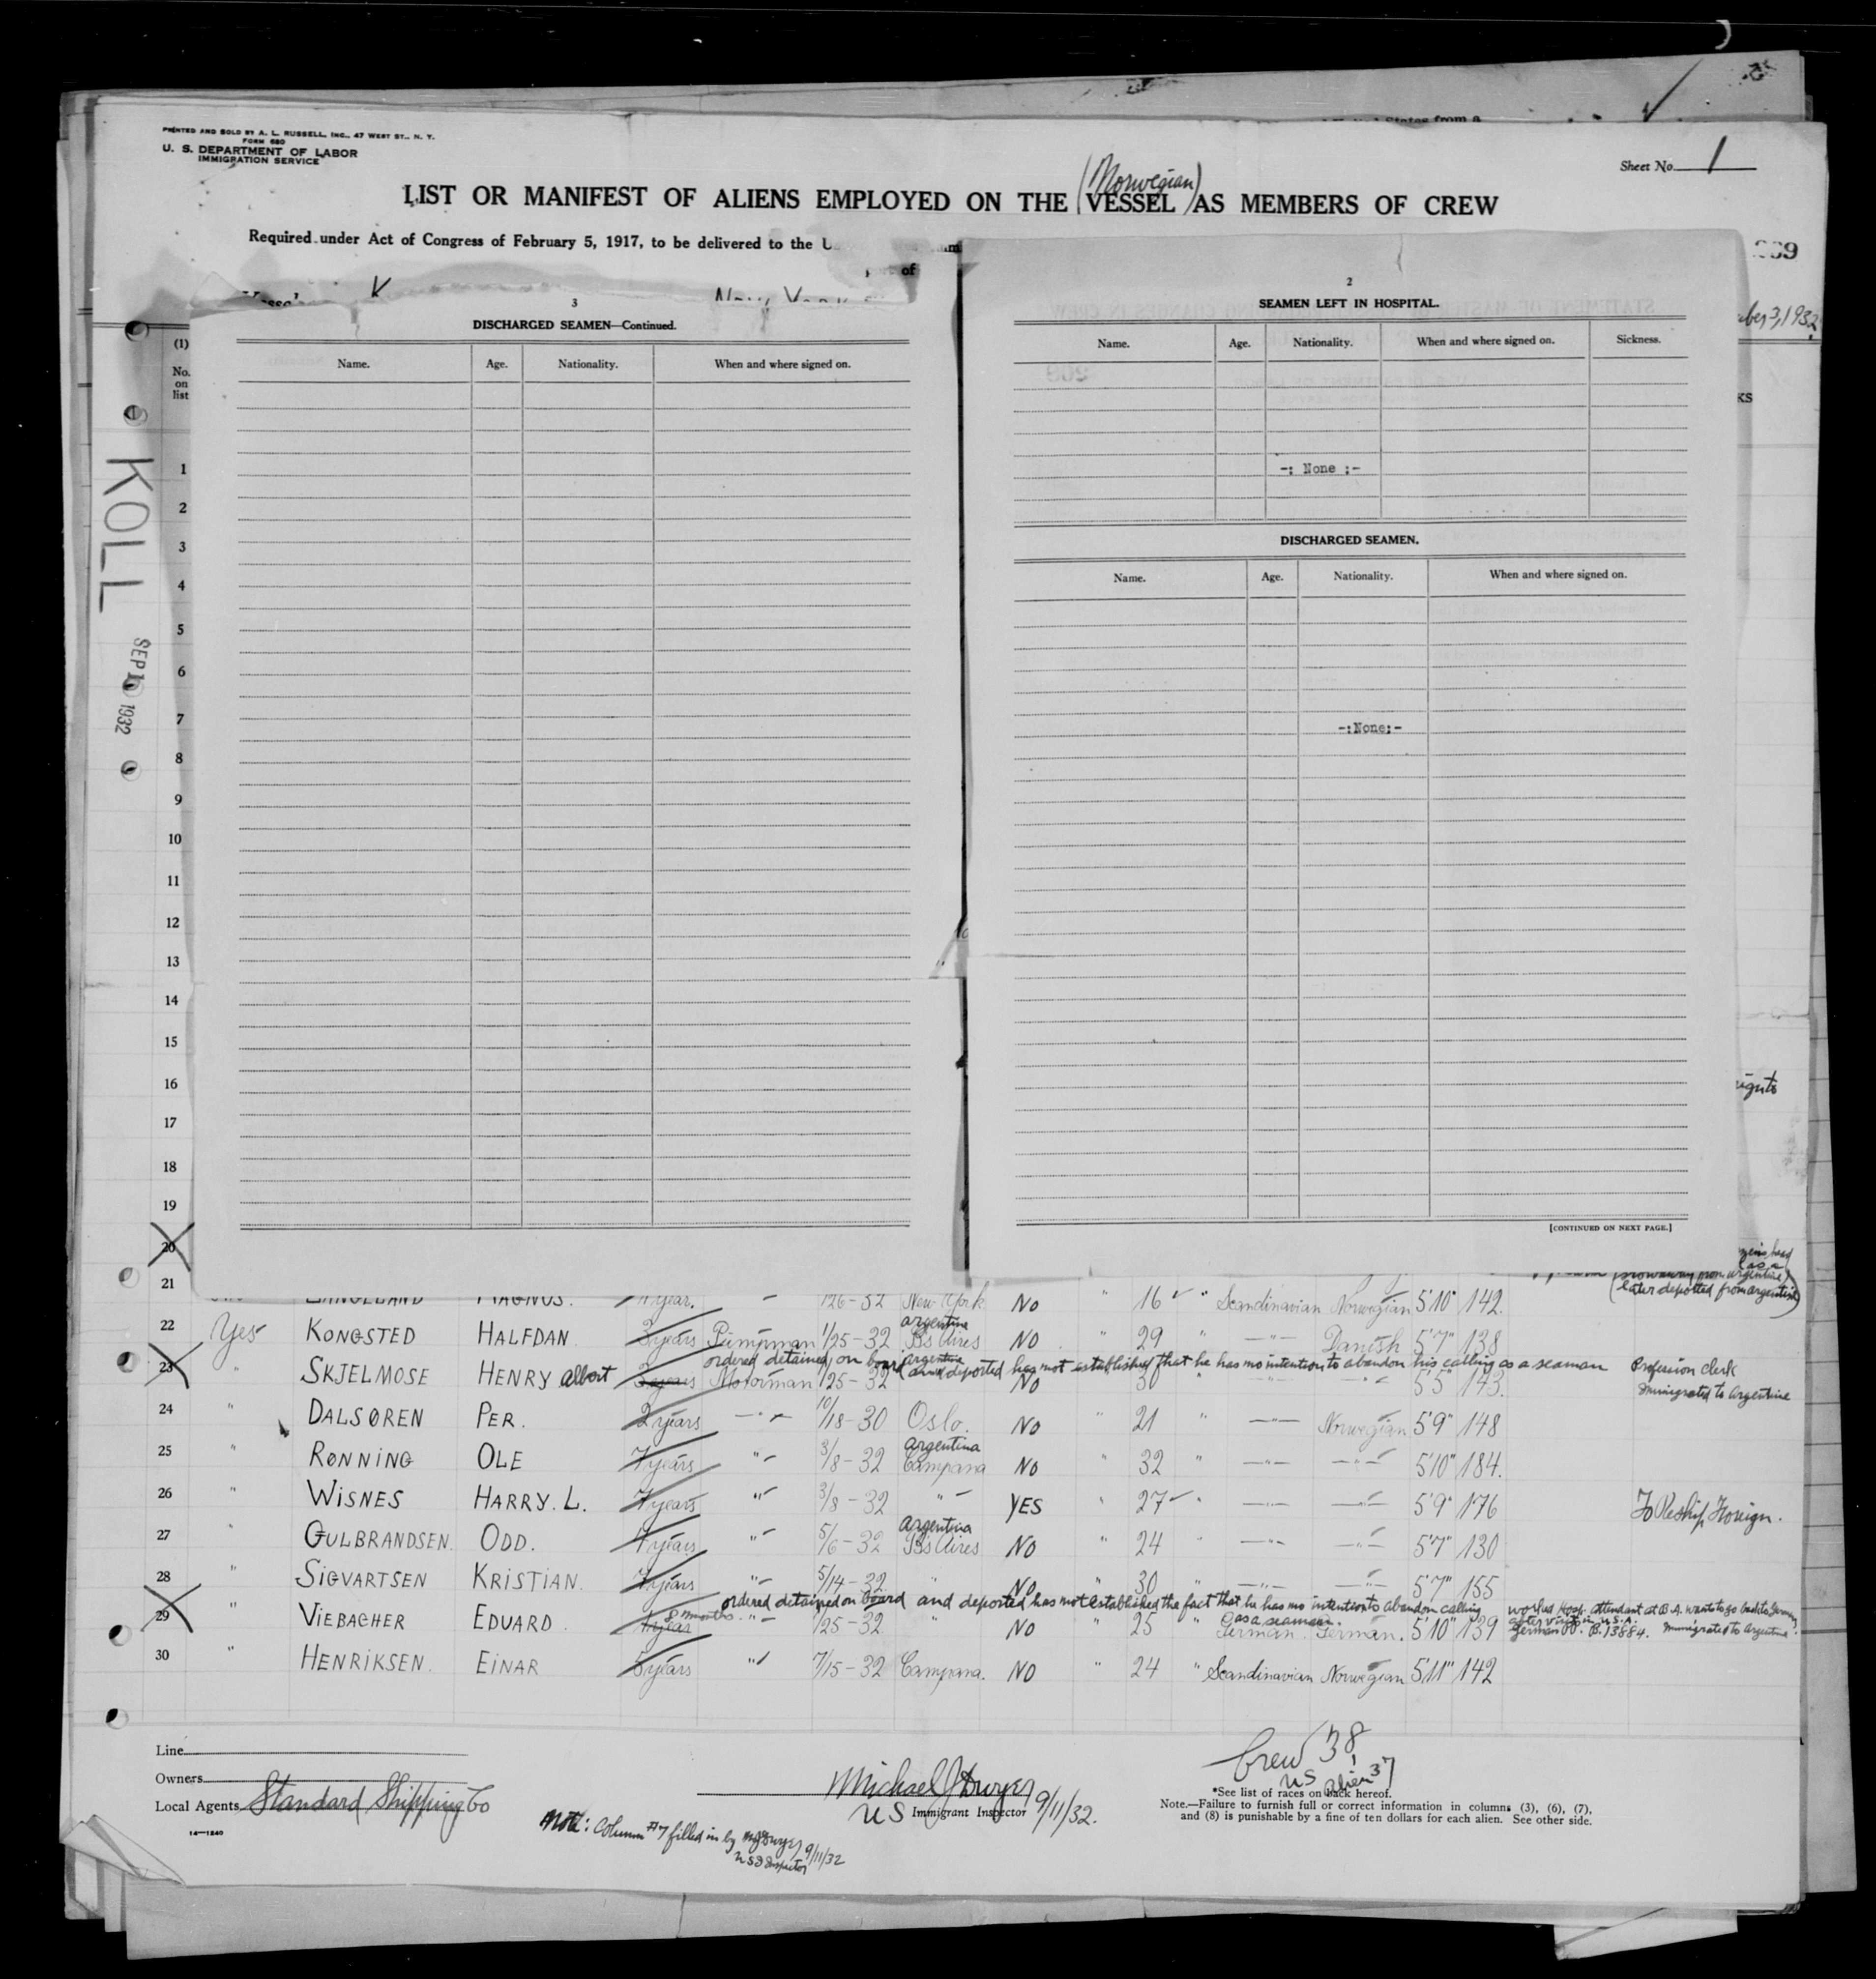 PRINTED AND SOLD BY A. L. RUSSELL, INC., 47 WEST ST., N. Y.
FORM 680
U. S. DEPARTMENT OF LABOR
IMMIGRATION SERVICE
Sheet No. 1
(Norwegian)
LIST OR MANIFEST OF ALIENS EMPLOYED ON THE VESSEL AS MEMBERS OF CREW
Required under Act of Congress of February 5, 1917, to be delivered to the U
of
K
New York
3, 1932
KOLL
SEP 1932
(1)
No. on list
3
DISCHARGED SEAMEN—Continued.
Name. Age. Nationality. When and where signed on.
2
SEAMEN LEFT IN HOSPITAL.
Name. Age. Nationality. When and where signed on. Sickness.
-: None :-
DISCHARGED SEAMEN.
Name. Age. Nationality. When and where signed on.
-:None:-
[CONTINUED ON NEXT PAGE.]
KS
1
2
3
4
5
6
7
8
9
10
11
12
13
14
15
16
17
18
19
20
(later deported from argentine)
21 MAGNUS. 1 year. 32 New York No " 16 " Scandinavian Norwegian 5'10" 142
argentine
22 Yes KONGSTED HALFDAN 3 years Pumpman 1/25-32 Bs Aires NO " 29 " -"- Danish 5'7" 138
ordered detained on board and deported has not established that he has no intention to abandon his calling as a seaman Profession clerk
23 " SKJELMOSE HENRY Albert 3 years Motorman 1/25-32 argentine No 30 5'5" 143. immigrated to Argentine
24 " DALSØREN PER. 2 years -"- 10/18-30 Oslo. No " 21 " -"- Norwegian 5'9" 148
argentina
25 " RØNNING OLE 7 years "- 3/8-32 Campana No " 32 " -"- -"- 5'10" 184.
26 " WISNES HARRY. L. 7 years "- 3/8-32 "- YES " 27 " -"- -"- 5'9" 176 To Reship Foreign.
argentina
27 " GULBRANDSEN. ODD. 7 years "- 5/6-32 Bs Aires No " 24 " -"- -"- 5'7" 130
28 " SIGVARTSEN KRISTIAN. 7 years "- 5/14-32 " No " 30 " -"- -"- 5'7" 155
ordered detained on board and deported has not established the fact that he has no intention to abandon calling as a seaman.
worked Hosp. attendant at B.A. wants to go back to Germany after visit in U.S.A.
German PP. B. 13884. immigrated to Argentine.
29 " VIEBACHER EDUARD. 1 year 8 months "- 1/25-32 " No " 25 " German. German. 5'10" 139
30 " HENRIKSEN. EINAR 5 years "- 7/15-32 Campana. NO " 24 " Scandinavian Norwegian 5'11" 142
Line
Owners
Local Agents Standard Shipping Co
14—1240
Michael J Dwyer 9/11/32.
US Immigrant Inspector
Note: Column #7 filled in by MJ Dwyer 9/11/32
US Inspector
Crew 38
US 1
alien 37
*See list of races on back hereof.
Note.—Failure to furnish full or correct information in columns (3), (6), (7),
and (8) is punishable by a fine of ten dollars for each alien. See other side.